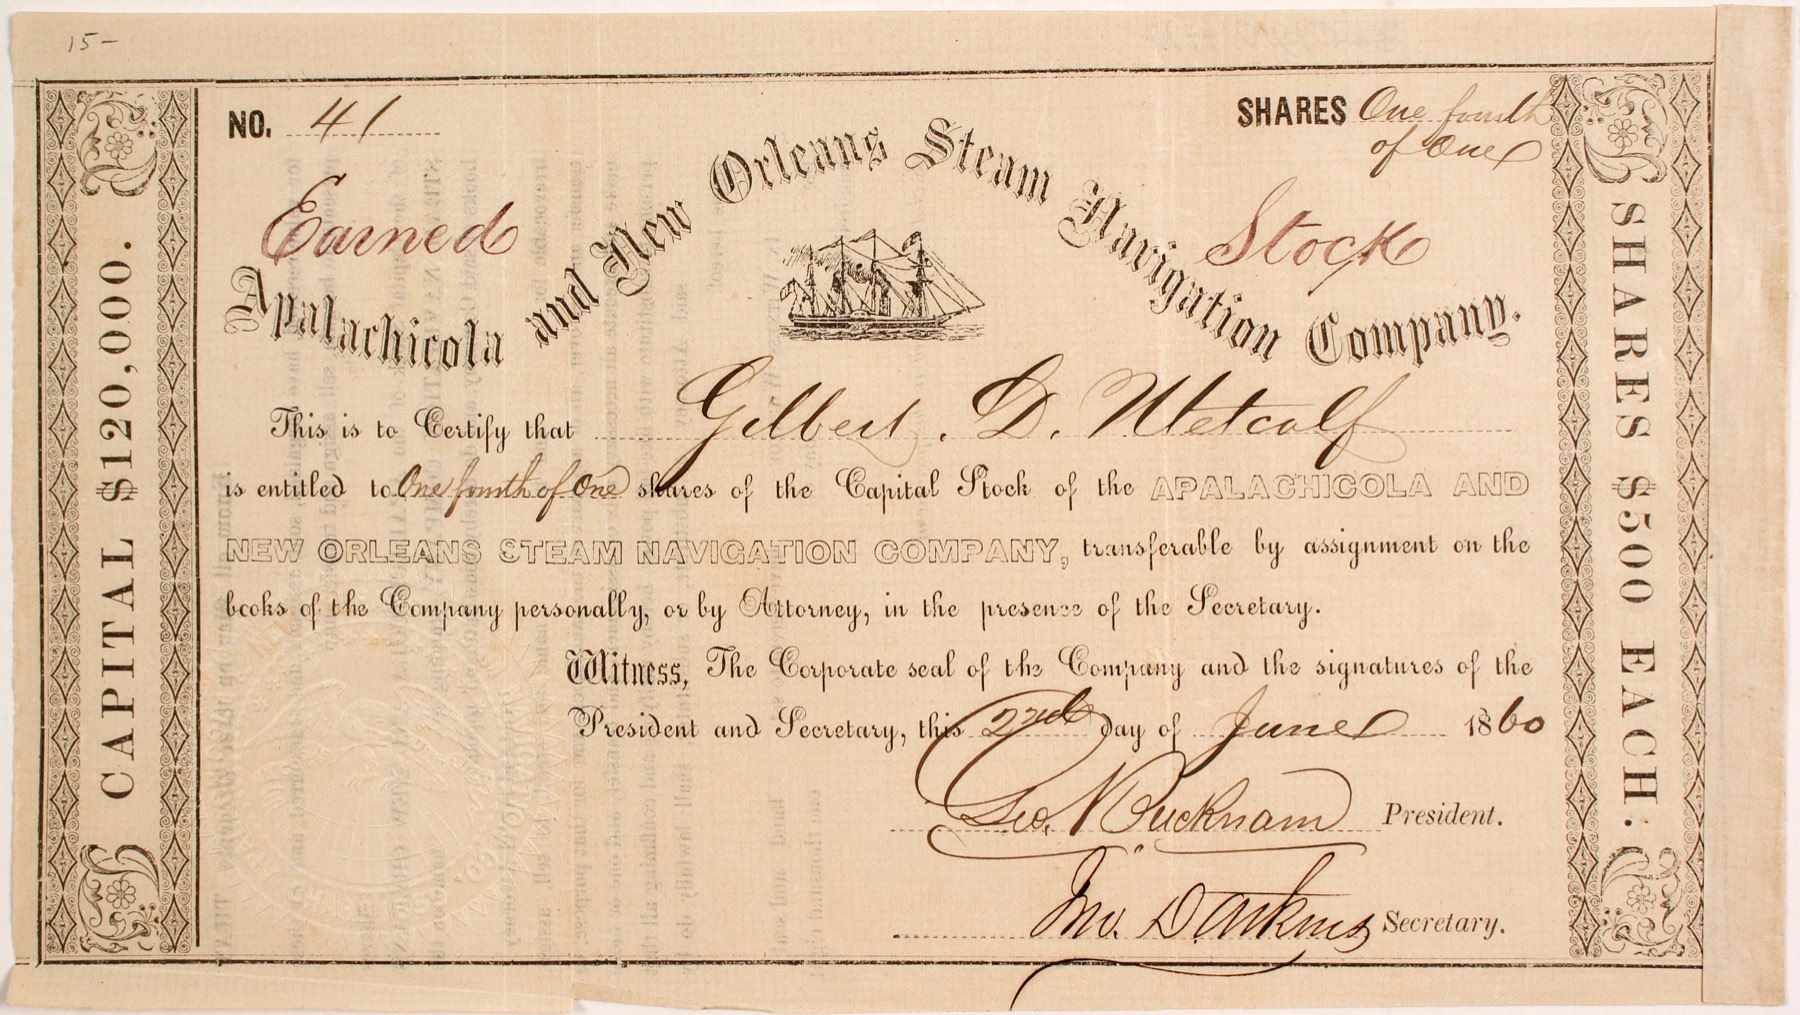 15-
NO. 41
SHARES One fourth
of One
Earned Stock
Apalachicola and New Orleans Steam Navigation Company.
This is to Certify that Gilbert. D. Metcalf
is entitled to One fourth of One shares of the Capital Stock of the APALACHICOLA AND
NEW ORLEANS STEAM NAVIGATION COMPANY, transferable by assignment on the
books of the Company personally, or by Attorney, in the presence of the Secretary.
Witness, The Corporate seal of the Company and the signatures of the
President and Secretary, this 22nd day of June 1860
Geo. N Bucknam President.
Jno. D. Atkins Secretary.
CAPITAL $120,000.
SHARES $500 EACH: